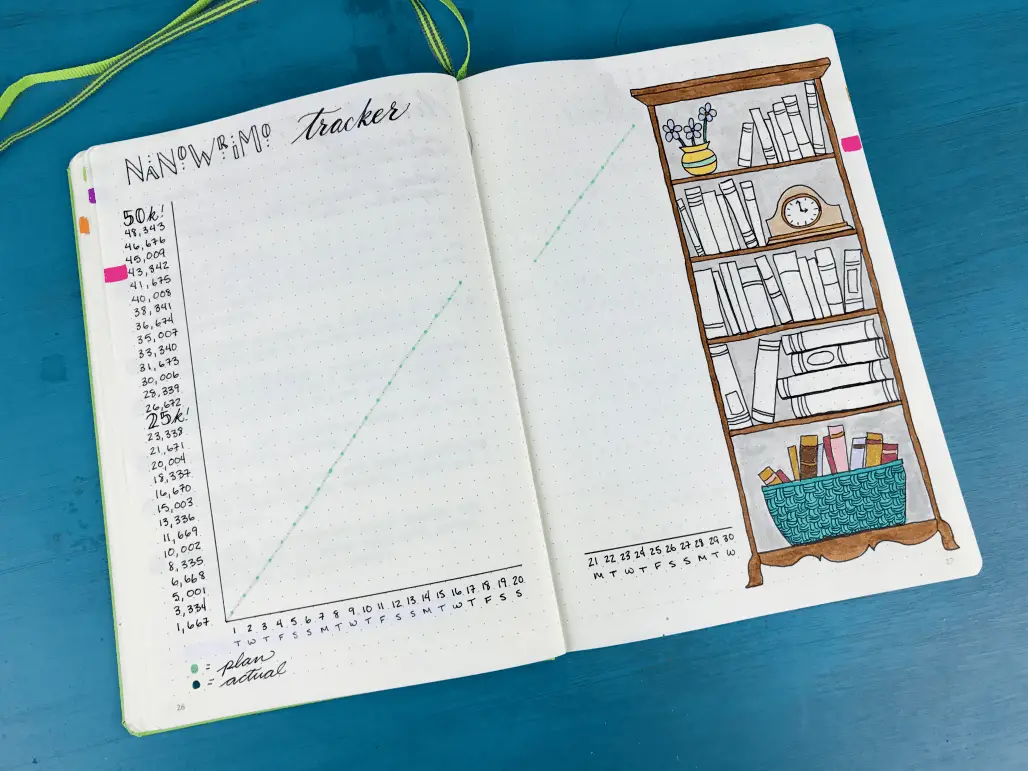 NANOWRIMO tracker
50k!
48,343
46,676
45,009
43,342
41,675
40,008
38,341
36,674
35,007
33,340
31,673
30,006
28,339
26,672
25k!
23,338
21,671
20,004
18,337
16,670
15,003
13,336
11,669
10,002
8,335
6,668
5,001
3,334
1,667
1 2 3 4 5 6 7 8 9 10 11 12 13 14 15 16 17 18 19 20
T W T F S S M T W T F S S M T W T F S S
= plan
= actual
26
21 22 23 24 25 26 27 28 29 30
M T W T F S S M T W